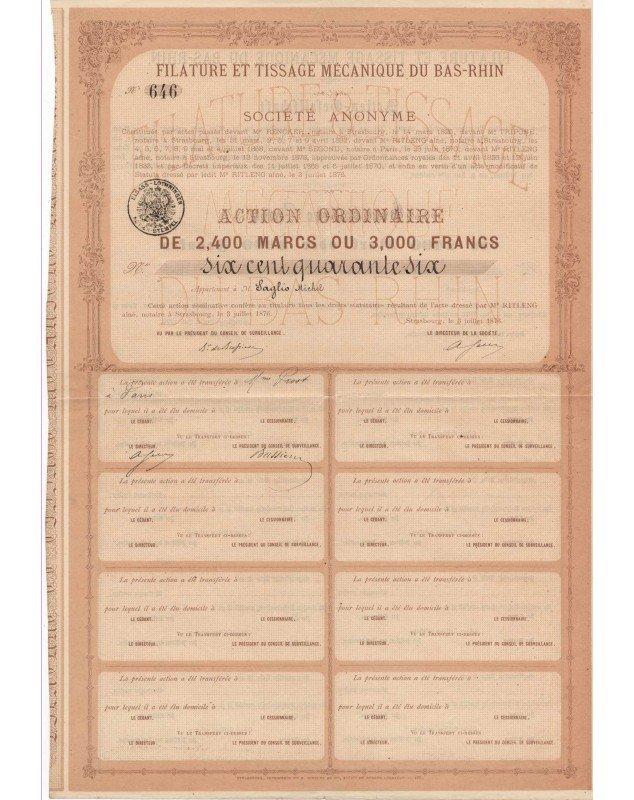 FILATURE ET TISSAGE MÉCANIQUE DU BAS-RHIN
No 646
SOCIÉTÉ ANONYME
Constituée par actes passés devant Me RENCKER, notaire à Strasbourg, le 14 mars 1825, devant Me TRIPONÉ,
notaire à Strasbourg, les 31 mars, 2, 5, 7 et 9 avril 1832, devant Me RITLENG aîné, notaire à Strasbourg, les
aîné, notaire à Strasbourg, le 13 novembre 1875, approuvée par Ordonnances royales des 21 avril 1826 et
Statuts dressé par ledit Me RITLENG aîné, le 3 juillet 1876.
ELSASS-LOTHRINGEN
STEMPEL
ACTION ORDINAIRE
DE 2,400 MARCS OU 3,000 FRANCS
No six cent quarante six
Appartenant à M. Saglio Michel
Cette action nominative confère au titulaire tous les droits statutaires résultant de l'acte dressé par Me RITLENG
aîné, notaire à Strasbourg, le 3 juillet 1876.
Strasbourg, le 3 juillet 1876.
VU PAR LE PRÉSIDENT DU CONSEIL DE SURVEILLANCE.
LE DIRECTEUR DE LA SOCIÉTÉ,
La présente action a été transférée à Mme
à Paris
pour lequel il a été élu domicile à
LE CÉDANT.
LE CESSIONNAIRE.
VU LE TRANSFERT CI-DESSUS:
LE DIRECTEUR.
LE PRÉSIDENT DU CONSEIL DE SURVEILLANCE.
La présente action a été transférée à
pour lequel il a été élu domicile à
LE CÉDANT.
LE CESSIONNAIRE.
VU LE TRANSFERT CI-DESSUS:
LE DIRECTEUR.
LE PRÉSIDENT DU CONSEIL DE SURVEILLANCE.
La présente action a été transférée à
pour lequel il a été élu domicile à
LE CÉDANT.
LE CESSIONNAIRE.
VU LE TRANSFERT CI-DESSUS:
LE DIRECTEUR.
LE PRÉSIDENT DU CONSEIL DE SURVEILLANCE.
La présente action a été transférée à
pour lequel il a été élu domicile à
LE CÉDANT.
LE CESSIONNAIRE.
VU LE TRANSFERT CI-DESSUS:
LE DIRECTEUR.
LE PRÉSIDENT DU CONSEIL DE SURVEILLANCE.
La présente action a été transférée à
pour lequel il a été élu domicile à
LE CÉDANT.
LE CESSIONNAIRE.
VU LE TRANSFERT CI-DESSUS:
LE DIRECTEUR.
LE PRÉSIDENT DU CONSEIL DE SURVEILLANCE.
La présente action a été transférée à
pour lequel il a été élu domicile à
LE CÉDANT.
LE CESSIONNAIRE.
VU LE TRANSFERT CI-DESSUS:
LE DIRECTEUR.
LE PRÉSIDENT DU CONSEIL DE SURVEILLANCE.
La présente action a été transférée à
pour lequel il a été élu domicile à
LE CÉDANT.
LE CESSIONNAIRE.
VU LE TRANSFERT CI-DESSUS:
LE DIRECTEUR.
LE PRÉSIDENT DU CONSEIL DE SURVEILLANCE.
La présente action a été transférée à
pour lequel il a été élu domicile à
LE CÉDANT.
LE CESSIONNAIRE.
VU LE TRANSFERT CI-DESSUS:
LE DIRECTEUR.
LE PRÉSIDENT DU CONSEIL DE SURVEILLANCE.